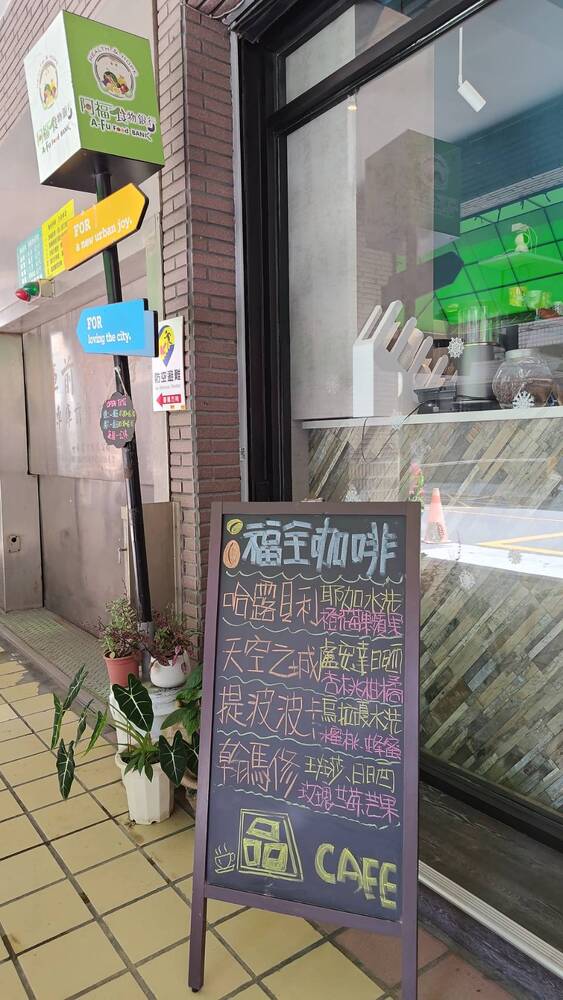 HEALTH & HOPE
阿福食物銀行
A-Fu Food BANK
FOR
a new urban joy.
FOR
loving the city.
防空避難
OPEN TIME
福全咖啡
哈露貝利
耶加水洗
天空之城
盧安達日晒
杏桃柑橘
提波波卡
烏拉嘎水洗
水蜜桃、蜂蜜
翰馬修
日晒
玫瑰、草莓、芒果
品
CAFE